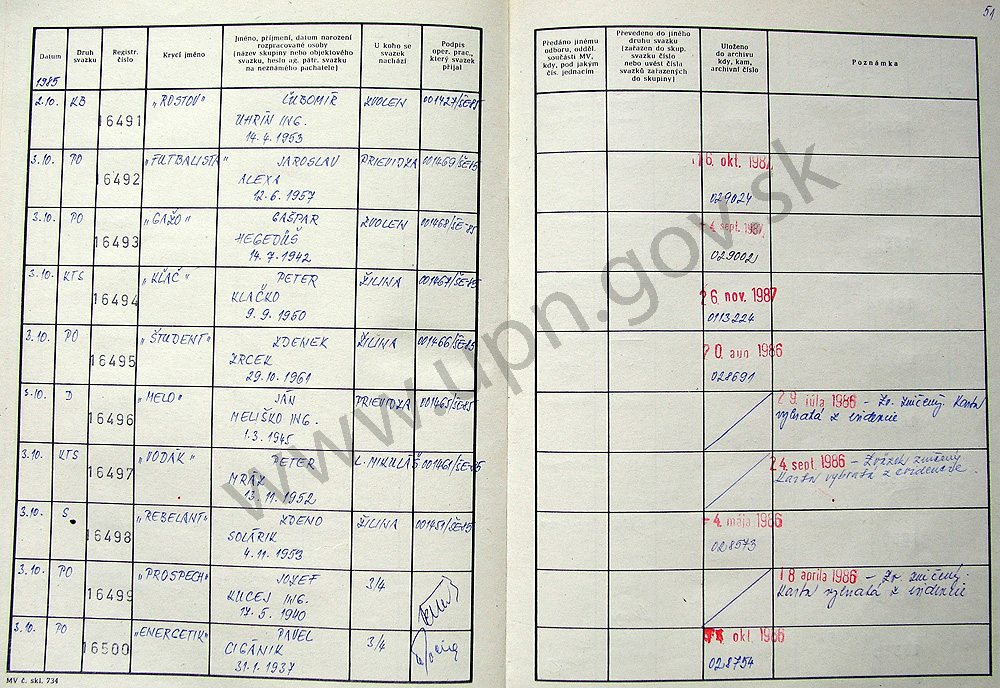 51
Datum
Druh svazku
Registr. číslo
Krycí jméno
Jméno, příjmení, datum narození rozpracované osoby (název skupiny nebo objektového svazku, heslo ag. pátr. svazku na neznámého pachatele)
U koho se svazek nachází
Podpis oper. prac., který svazek přijal
Předáno jinému odboru, odděl. součásti MV, kdy, pod jakým čís. jednacím
Převedeno do jiného druhu svazku (zařazen do skup. svazku číslo nebo uvést čísla svazků zařazených do skupiny)
Uloženo do archivu kdy, kam, archivní číslo
Poznámka
1985
2.10. KB 16491 „ROSTOV" ĽUBOMÍR ZVOLEN 001427/ŠE-85
UHRÍN ING.
14.4.1953
3.10. PO 16492 „FUTBALISTA" JAROSLAV PRIEVIDZA 001469/ŠE-85 6. okt. 1987
ALEXA
12.6.1957 029024
3.10. PO 16493 „GAŽO" GAŠPAR ZVOLEN 001468/ŠE-85 - 4. sept. 1987
HEGEDŰŠ
14.7.1942 029002
3.10. KTS 16494 „KĽAČ" PETER ŽILINA 001467/ŠE-85 26. nov. 1987
KLAČKO
9.9.1960 0113224
3.10. PO 16495 „ŠTUDENT" ZDENEK ŽILINA 001466/ŠE-85 20. aug. 1986
ZRCEK
29.10.1961 028691
3.10. D 16496 „MELO" JÁN PRIEVIDZA 001465/ŠE-85 29. júla 1986 - Zv. zničený. Karta
MELIŠKO ING. vybratá z evidencie
1.3.1945
3.10. KTS 16497 „VODÁK" PETER L. MIKULÁŠ 001461/ŠE-85 24. sept. 1986 - Zväzok zničený
MRÁZ Karta vybratá z evidencie.
13.11.1952
3.10. S 16498 „REBELANT" ZDENO ŽILINA 001451/ŠE-85 - 4. mája 1986
SOLÁRIK
4.11.1953 028573
3.10. PO 16499 „PROSPECH" JOZEF 3/4 18. apríla 1986 - Zv. zničený.
KUCEJ ING. Karta vybratá z evidencie
17.5.1940
3.10. PO 16500 „ENERGETIK" PAVEL 3/4 okt. 1986
CIGÁNIK
31.1.1937 028754
MV č. skl. 734
www.upn.gov.sk